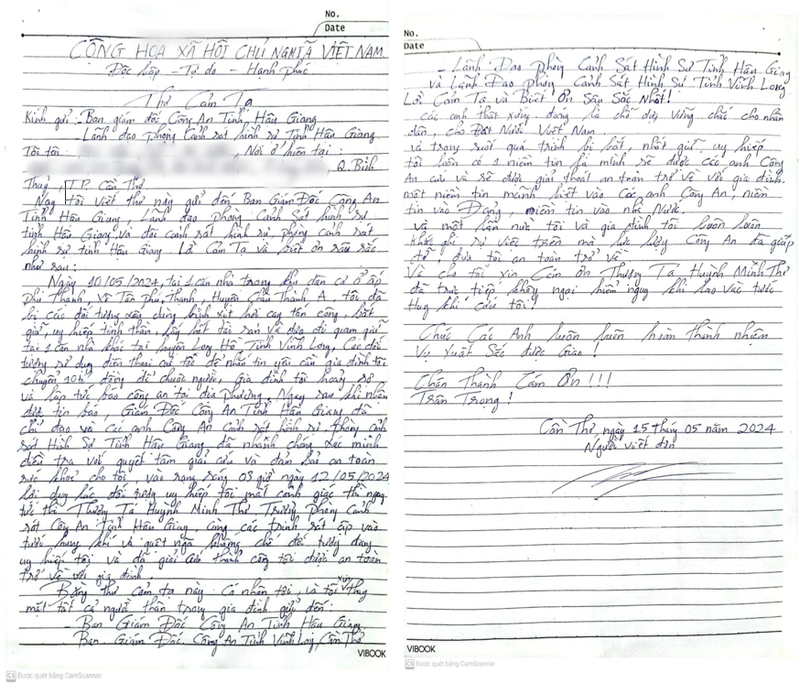 No.
Date
CỘNG HÒA XÃ HỘI CHỦ NGHĨA VIỆT NAM
Độc lập - Tự do - Hạnh phúc
Thư Cảm Tạ
Kính gửi - Ban giám đốc Công An Tỉnh Hậu Giang
- Lãnh đạo phòng cảnh sát hình sự Tỉnh Hậu Giang
Tôi tên: , Nơi ở hiện tại:
Q. Bình
Thuỷ, T.P. Cần Thơ
Nay tôi viết thư này gửi đến Ban Giám Đốc Công An
Tỉnh Hậu Giang, Lãnh đạo phòng Cảnh Sát hình sự
tỉnh Hậu Giang và đội cảnh sát hình sự phòng cảnh sát
hình sự tỉnh Hậu Giang. Lời Cảm Tạ và biết ơn sâu sắc
như sau:
Ngày 10/05/2024, tại 1 căn nhà trong khu dân cư ở ấp
Phú Thạnh, Xã Tân Phú Thạnh, Huyện Châu Thành A tôi đã
bị các đối tượng xấu dùng bình xịt hơi cay tấn công, bắt
giữ, uy hiếp tinh thần, lấy hết tài sản và đưa đi giam giữ
tại 1 căn nhà khác tại huyện Long Hồ, Tỉnh Vĩnh Long, Các đối
tượng sử dụng điện thoại của tôi để nhắn tin yêu cầu gia đình tôi
chuyển 10 tỉ đồng để chuộc người, Gia đình tôi hoảng sợ
và lập tức báo công an tại địa phương. Ngay sau khi nhận
được tin báo, Giám Đốc Công An Tỉnh Hậu Giang đã
chỉ đạo và các anh Công An Cảnh sát hình sự, phòng cảnh
sát Hình Sự Tỉnh Hậu Giang đã nhanh chóng xác minh
điều tra với quyết tâm giải cứu và đảm bảo an toàn
sức khoẻ cho tôi, vào rạng sáng 03 giờ ngày 12/05/2024
lợi dụng lúc đối tượng uy hiếp tôi mất cảnh giác thì ngay
tức thì Thượng Tá Huỳnh Minh Thư Trưởng Phòng Cảnh
sát Công An Tỉnh Hậu Giang, cùng các trinh sát ập vào
tước hung khí và quật ngã, khống chế đối tượng đang
uy hiếp tôi và đã giải cứu thành công tôi được an toàn
trở về với gia đình.
Bằng thư cảm tạ này: Cá nhân tôi, và tôi xin thay
mặt tất cả người thân trong gia đình gửi đến:
- Ban Giám Đốc Công An Tỉnh Hậu Giang
Ban Giám Đốc Công An Tỉnh Vĩnh Long, Cần Thơ
VIBOOK
CS Được quét bằng CamScanner
No.
Date
- Lãnh Đạo phòng Cảnh Sát Hình Sự Tỉnh Hậu Giang
và Lãnh Đạo phòng Cảnh Sát Hình Sự Tỉnh Vĩnh Long.
Lời Cảm Tạ và Biết Ơn Sâu Sắc Nhất!
Các anh thật xứng đáng là chỗ dựa vững chắc cho nhân
dân, cho Đất Nước Việt Nam.
Và trong suốt quá trình bị bắt, nhốt giữ, uy hiếp
tôi luôn có 1 niềm tin là mình sẽ được các anh Công
An cứu và sẽ được giải thoát an toàn trở về với gia đình.
một niềm tin mãnh liệt vào các anh Công An, niềm
tin vào Đảng, niềm tin vào nhà Nước.
Và một lần nữa tôi và gia đình tôi luôn luôn
khắc ghi sự việc trên mà lực lượng Công An đã giúp
đỡ, đưa tôi an toàn trở về.
Và cho tôi xin Cám ơn Thượng Tá Huỳnh Minh Thư
đã trực tiếp không ngại hiểm nguy khi lao vào tước
Hung khí cứu tôi!
Chúc Các Anh luôn luôn hoàn thành nhiệm
Vụ Xuất Sắc được Giao!
Chân Thành Cám Ơn!!!
Trân Trọng!
Cần Thơ, ngày 15 tháng 05 năm 2024
Người viết đơn
VIBOOK
CS Được quét bằng CamScanner